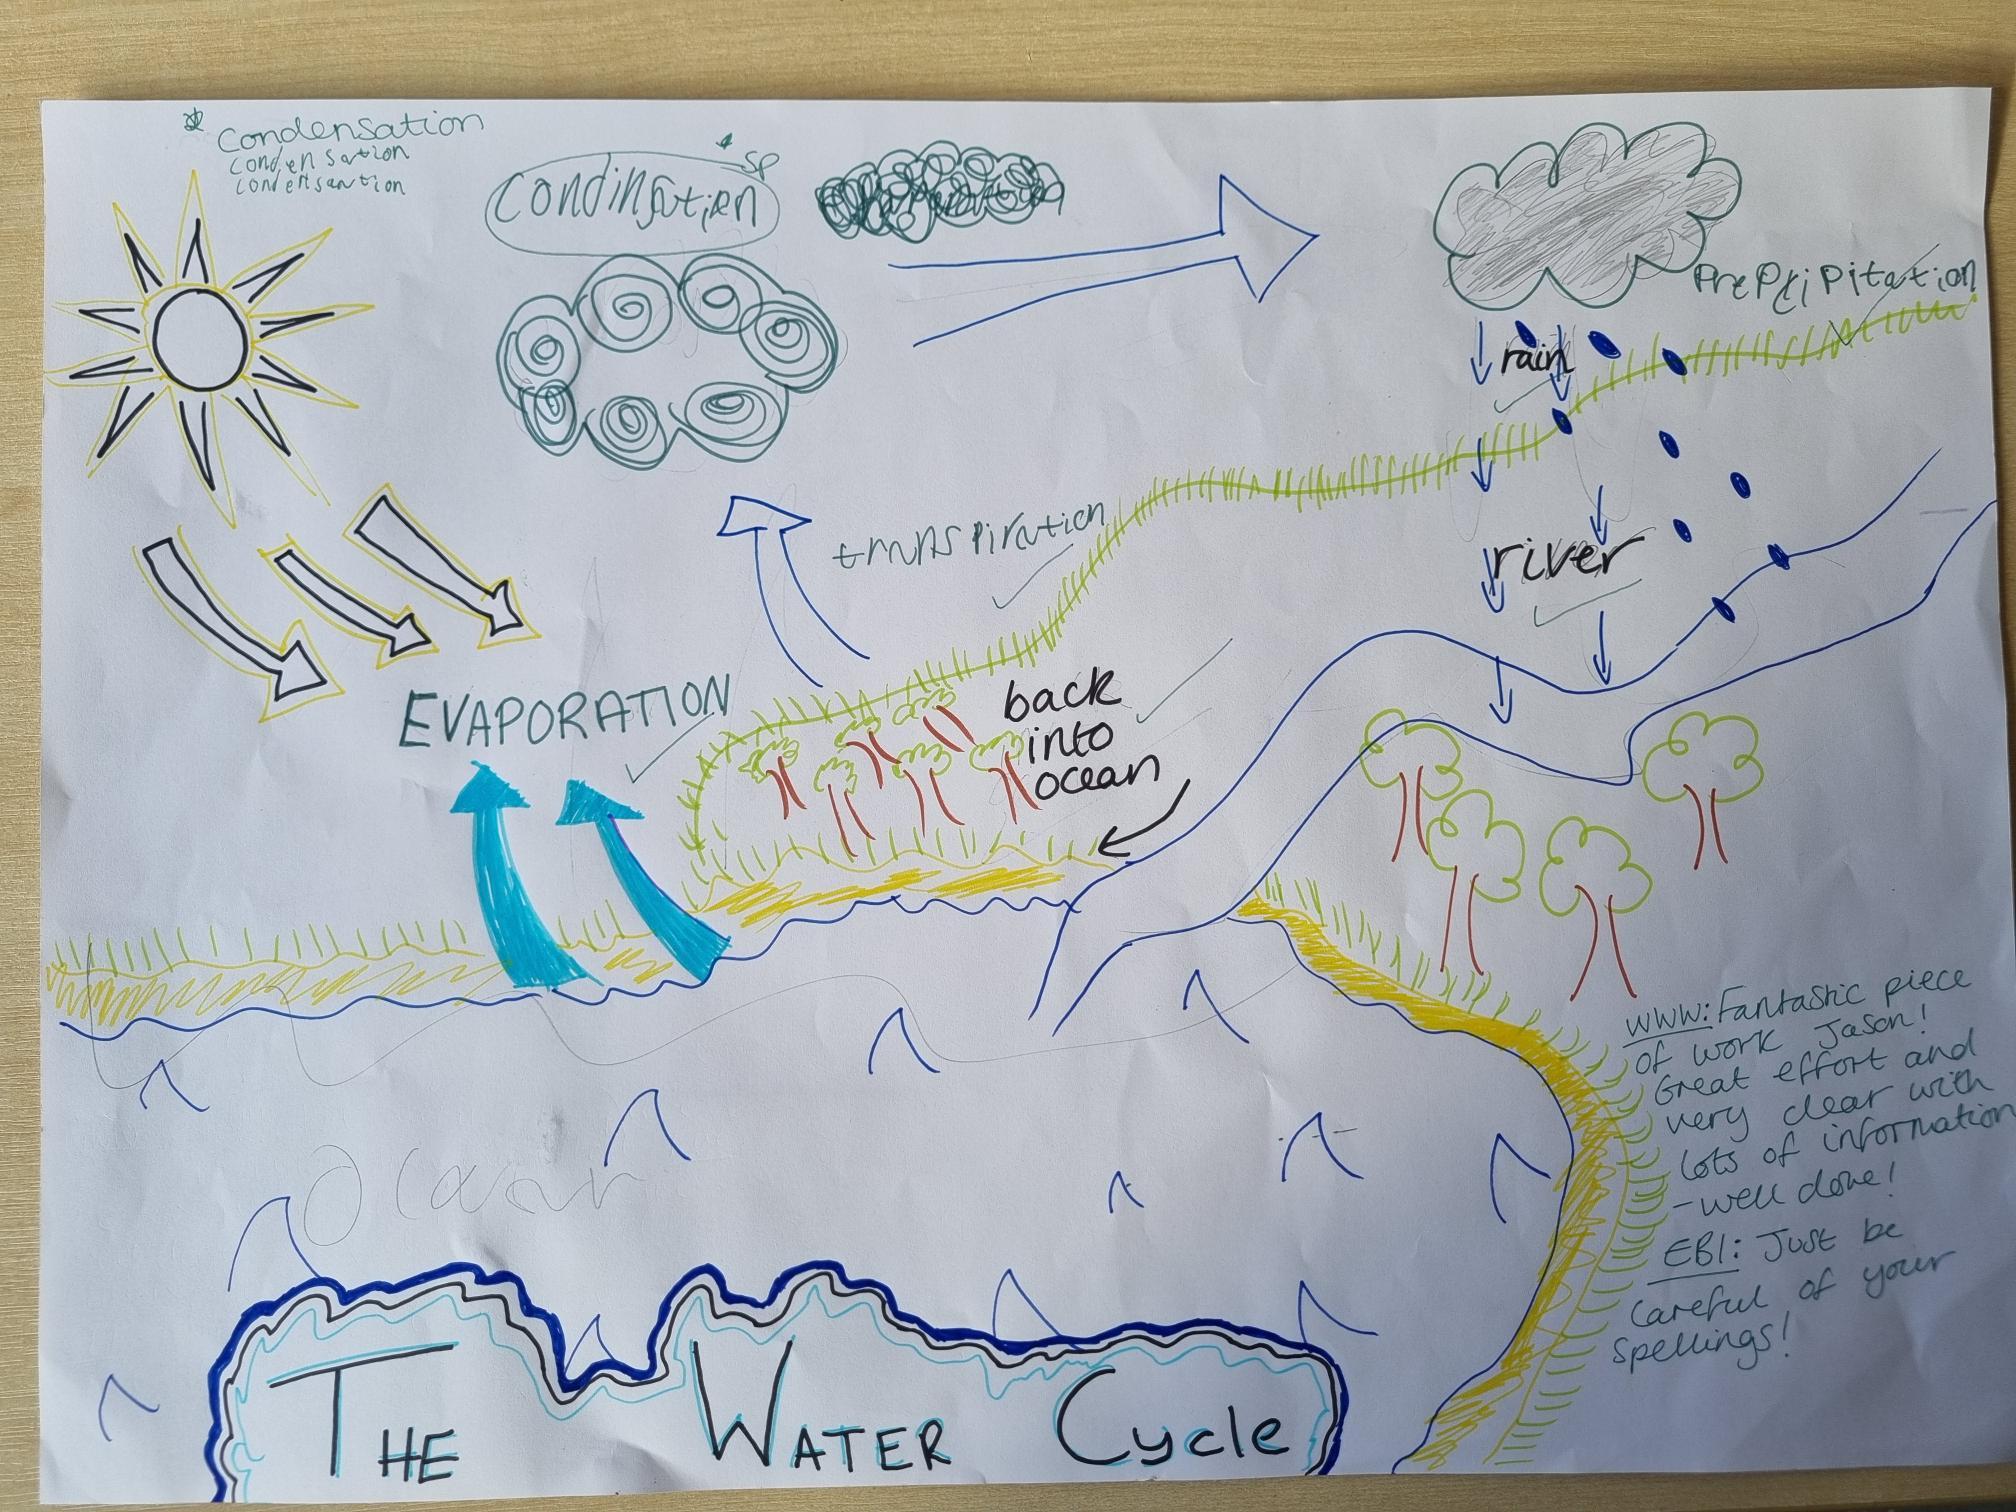 * Condensation
Condensation
Condensantion
* sp
Condinsatien
PrePciPitation
rain
transpiration
river
EVAPORATION
back
into
ocean
WWW: Fantastic piece
of work Jason!
Great effort and
very clear with
lots of information
- well done!
EBI: Just be
careful of your
spellings!
THE WATER Cycle